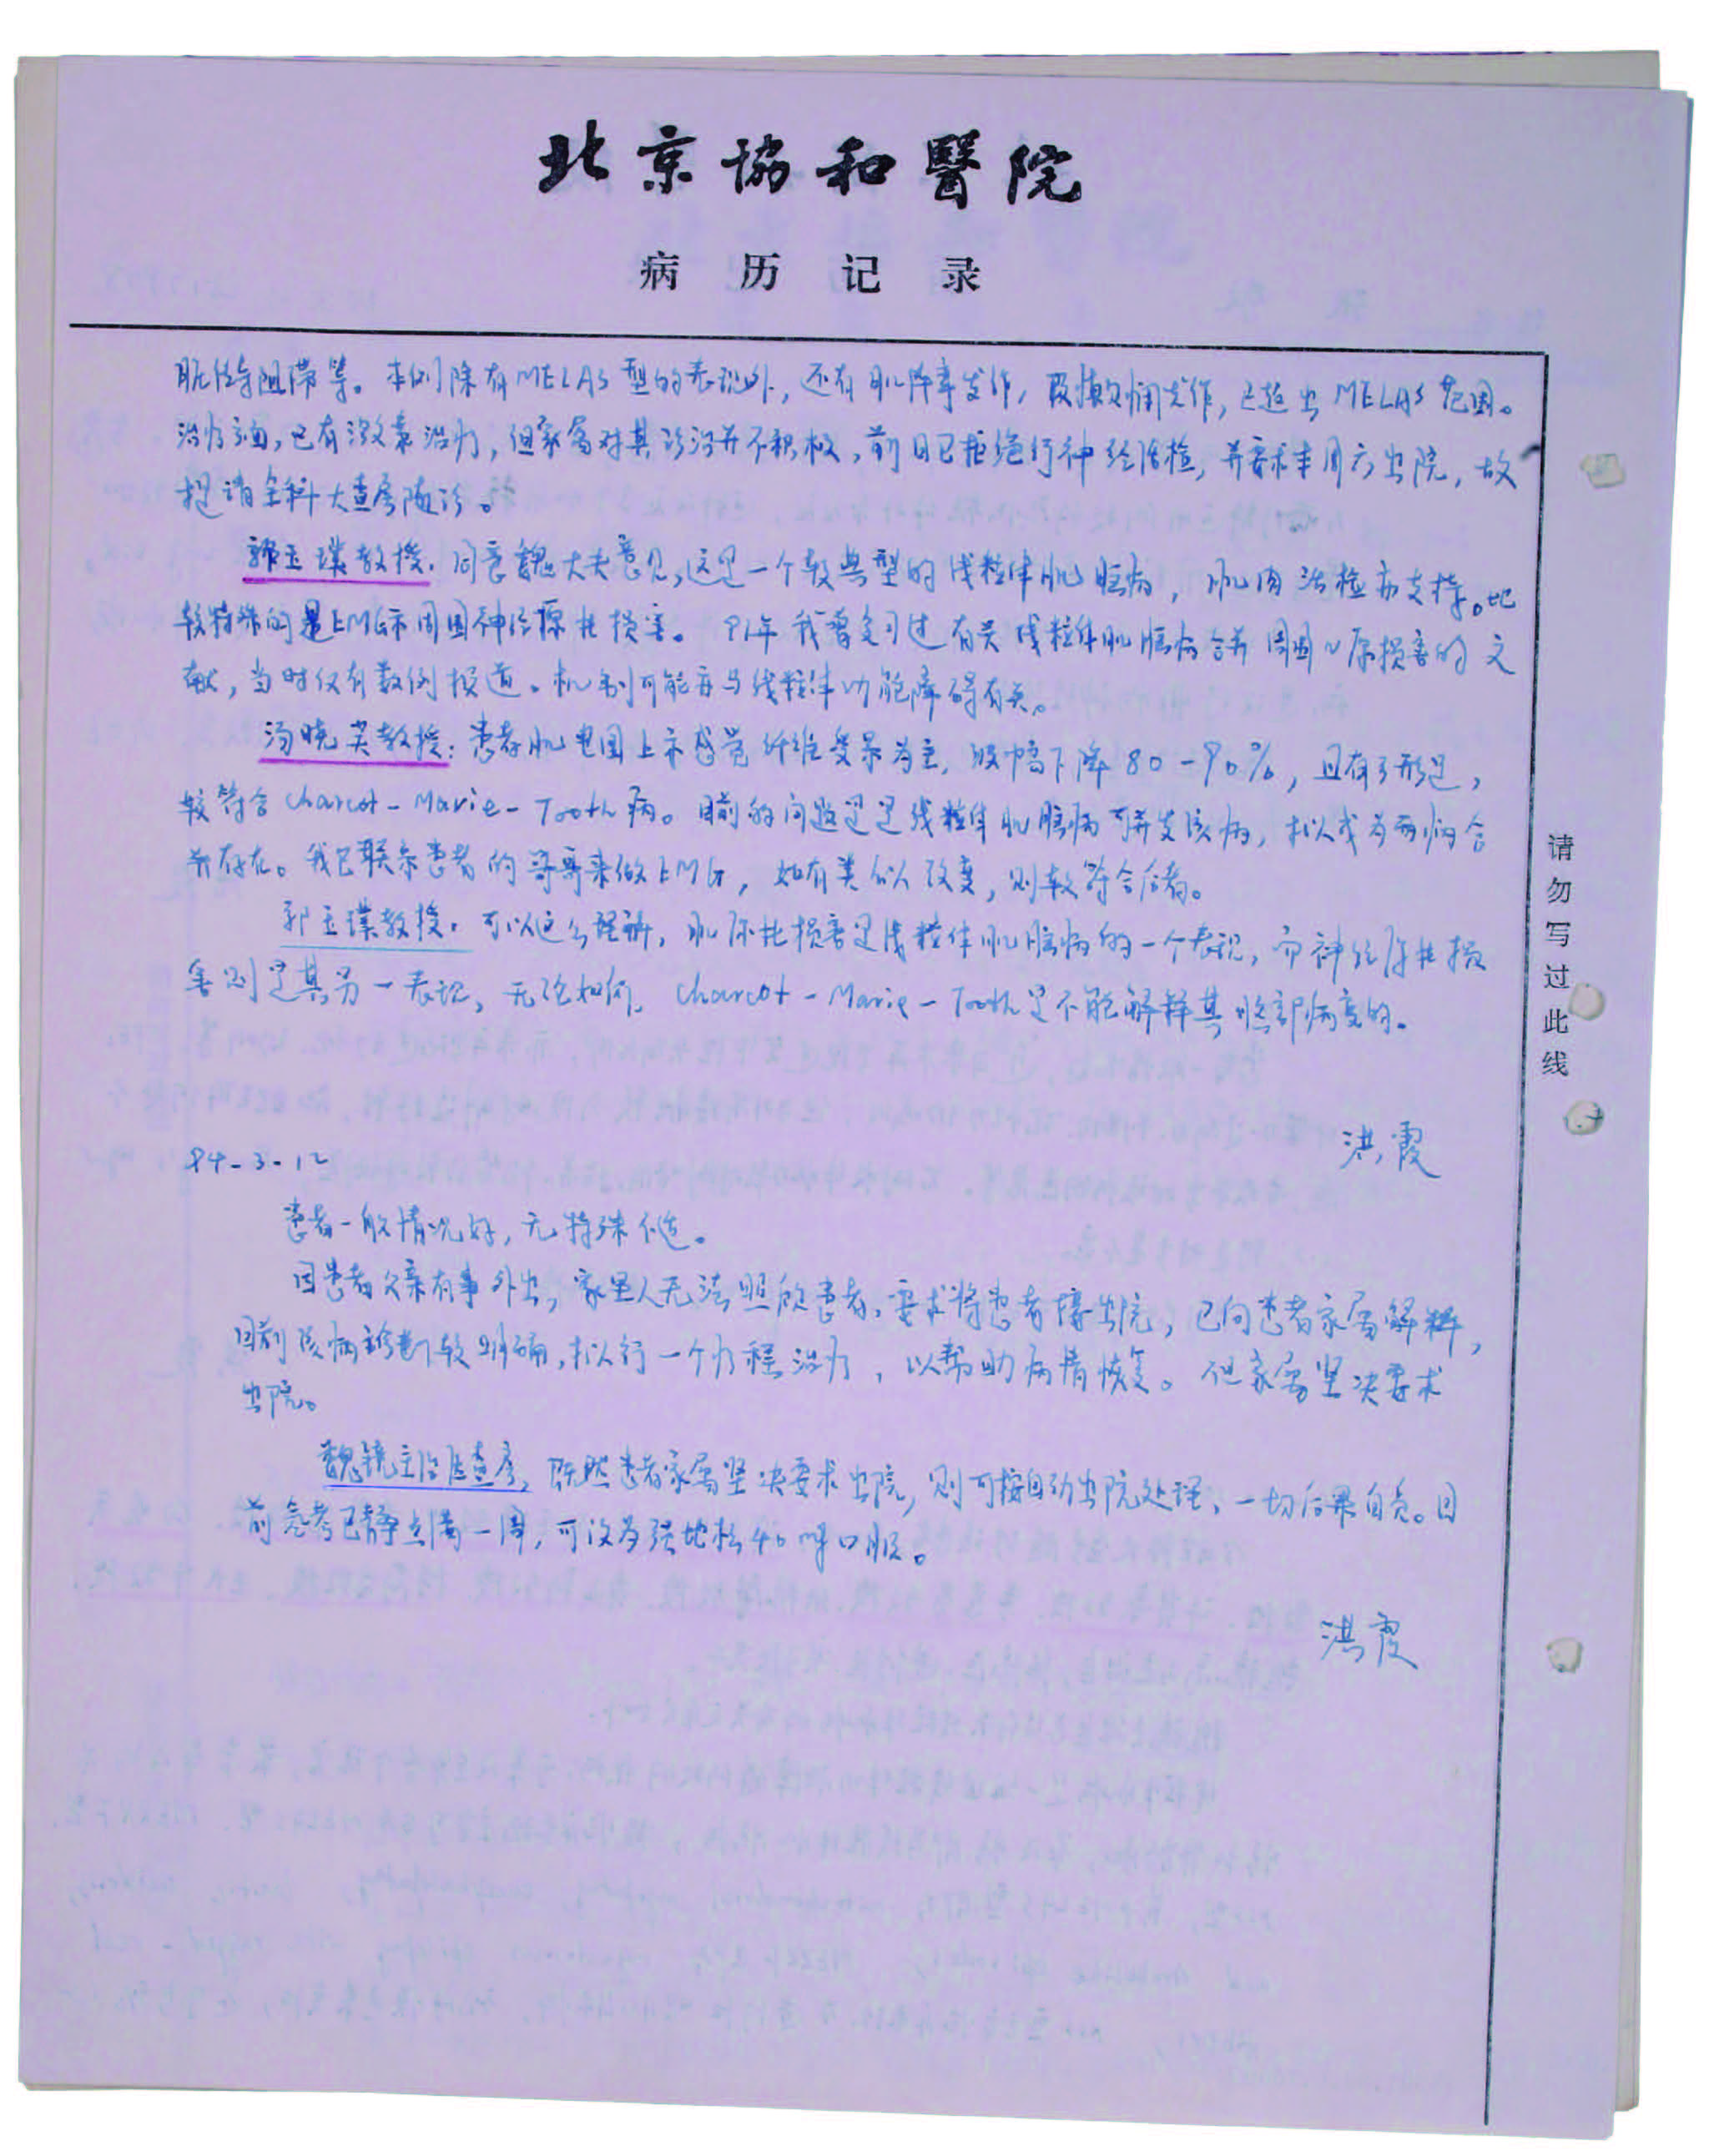 北京协和醫院
病历记录
脏传导阻滞等。本例除有MELAS型的表现外，还有肌阵挛发作，及癫痫发作，已超出MELAS范围。
治疗方面，已有激素治疗，但家属对其诊治并不积极，前日已拒绝行神经活检，并要求本周六出院，故
提请全科大查房随诊。
郭玉璞教授：同意魏大夫意见，这是一个较典型的线粒体肌脑病，肌肉活检亦支持。比
较特殊的是EMG示周围神经源性损害。91年我曾复习过有关线粒体肌脑病合并周围N原损害的文
献，当时仅有数例报道。机制可能亦与线粒体功能障碍有关。
汤晓芙教授：患者肌电图上示感觉纤维受累为主，波幅下降80-90%，且有弓形足，
较符合Charcot-Marie-Tooth病。目前的问题是是线粒体肌脑病可并发该病，抑或为两病合
并存在。我已联系患者的哥哥来做EMG，如有类似改变，则较符合后者。
郭玉璞教授：可以这么理解，肌原性损害是线粒体肌脑病的一个表现，而神经原性损
害则是其另一表现，无论如何，Charcot-Marie-Tooth是不能解释其脑部病变的。
洪霞
94-3-12
患者一般情况好，无特殊不适。
因患者父亲有事外出，家里人无法照顾患者，要求将患者接出院，已向患者家属解释，
目前该病诊断较明确，拟行一个疗程治疗，以帮助病情恢复。但家属坚决要求
出院。
魏镜主治医查房，既然患者家属坚决要求出院，则可按自动出院处理，一切后果自负。目
前患者已静点满一周，可改为强地松40mg口服。
洪霞
请勿写过此线